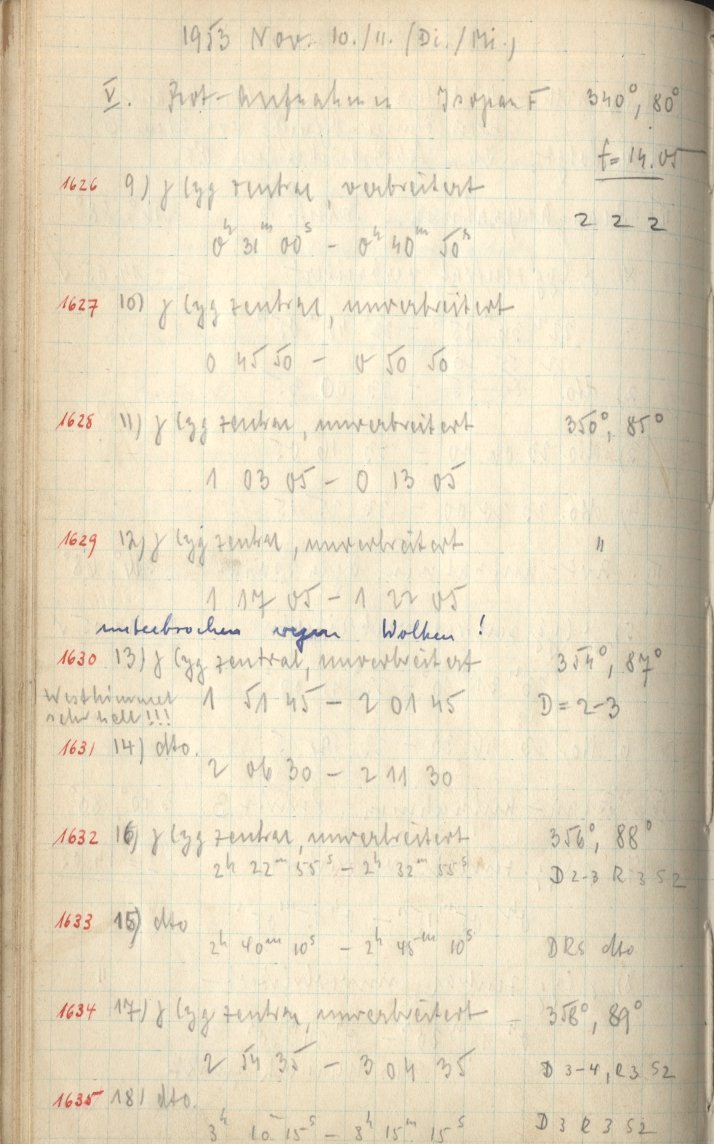 1953 Nov. 10./11. (Di./Mi.)
V. Rot-Aufnahmen Isopan F 340°, 80°
f = 14.05
1626 9) γ Cyg zentral, verbreitert
2 2 2
0ʰ 31ᵐ 00ˢ – 0ʰ 40ᵐ 50ˢ
1627 10) γ Cyg zentral, unverbreitert
0 45 50 – 0 50 50
1628 11) γ Cyg zentral, unverbreitert 350°, 85°
1 03 05 – 0 13 05
1629 12) γ Cyg zentral, unverbreitert "
1 17 05 – 1 22 05
unterbrochen wegen Wolken!
1630 13) γ Cyg zentral, unverbreitert 354°, 87°
Westhimmel
sehr hell!!!
1 51 45 – 2 01 45 D = 2-3
1631 14) dto.
2 06 30 – 2 11 30
1632 16) γ Cyg zentral, unverbreitert 356°, 88°
2ʰ 22ᵐ 55ˢ – 2ʰ 32ᵐ 55ˢ D 2-3 R 3 S 2
1633 15) dto
2ʰ 40ᵐ 10ˢ – 2ʰ 45ᵐ 10ˢ DRS dto
1634 17) γ Cyg zentral, unverbreitert 358°, 89°
2 54 35 – 3 04 35 D 3-4, R 3 S 2
1635 18) dto.
3ʰ 10ᵐ 15ˢ – 3ʰ 15ᵐ 15ˢ D 3 R 3 S 2